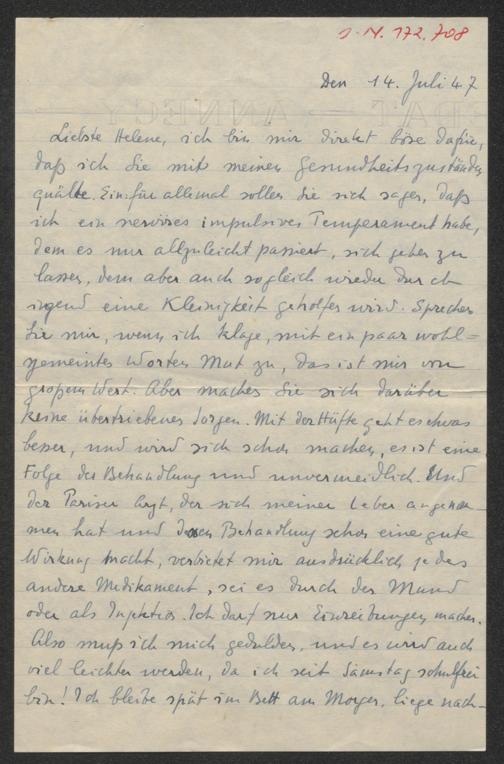 J.N. 172.708
Den 14. Juli 47
Liebste Helene, ich bin mir direkt böse dafür,
daß ich Sie mit meinen Gesundheitszuständen
quälte. Ein für allemal sollen Sie sich sagen, daß
ich ein nervöses impulsives Temperament habe,
dem es nur allzuleicht passiert, sich gehen zu
lassen, dem aber auch sogleich wieder durch
irgend eine Kleinigkeit geholfen wird. Sprechen
Sie mir, wenn ich klage, mit ein paar wohl=
gemeinten Worten Mut zu, das ist mir von
großem Wert. Aber machen Sie sich darüber
keine übertriebenen Sorgen. Mit der Hüfte geht es etwas
besser, und wird sich schon machen, es ist eine
Folge der Behandlung und unvermeidlich. Und
der Pariser Arzt, der sich meiner Leber angenom-
men hat und dessen Behandlung schon eine gute
Wirkung macht, verbietet mir ausdrücklich jedes
andere Medikament, sei es durch den Mund
oder als Injektion. Ich darf nur Einreibungen machen.
Also muß ich mich gedulden, und es wird auch
viel leichter werden, da ich seit Samstag schulfrei
bin! Ich bleibe spät im Bett am Morgen, liege nach-